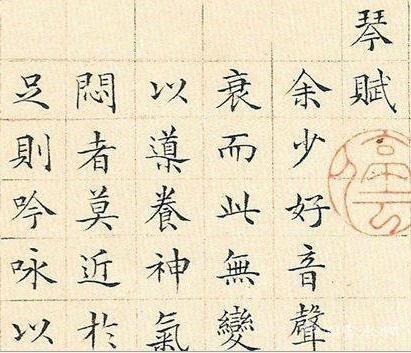 琴賦
余少好音聲
衰而此無變
以導養神氣
悶者莫近於
足則吟咏以